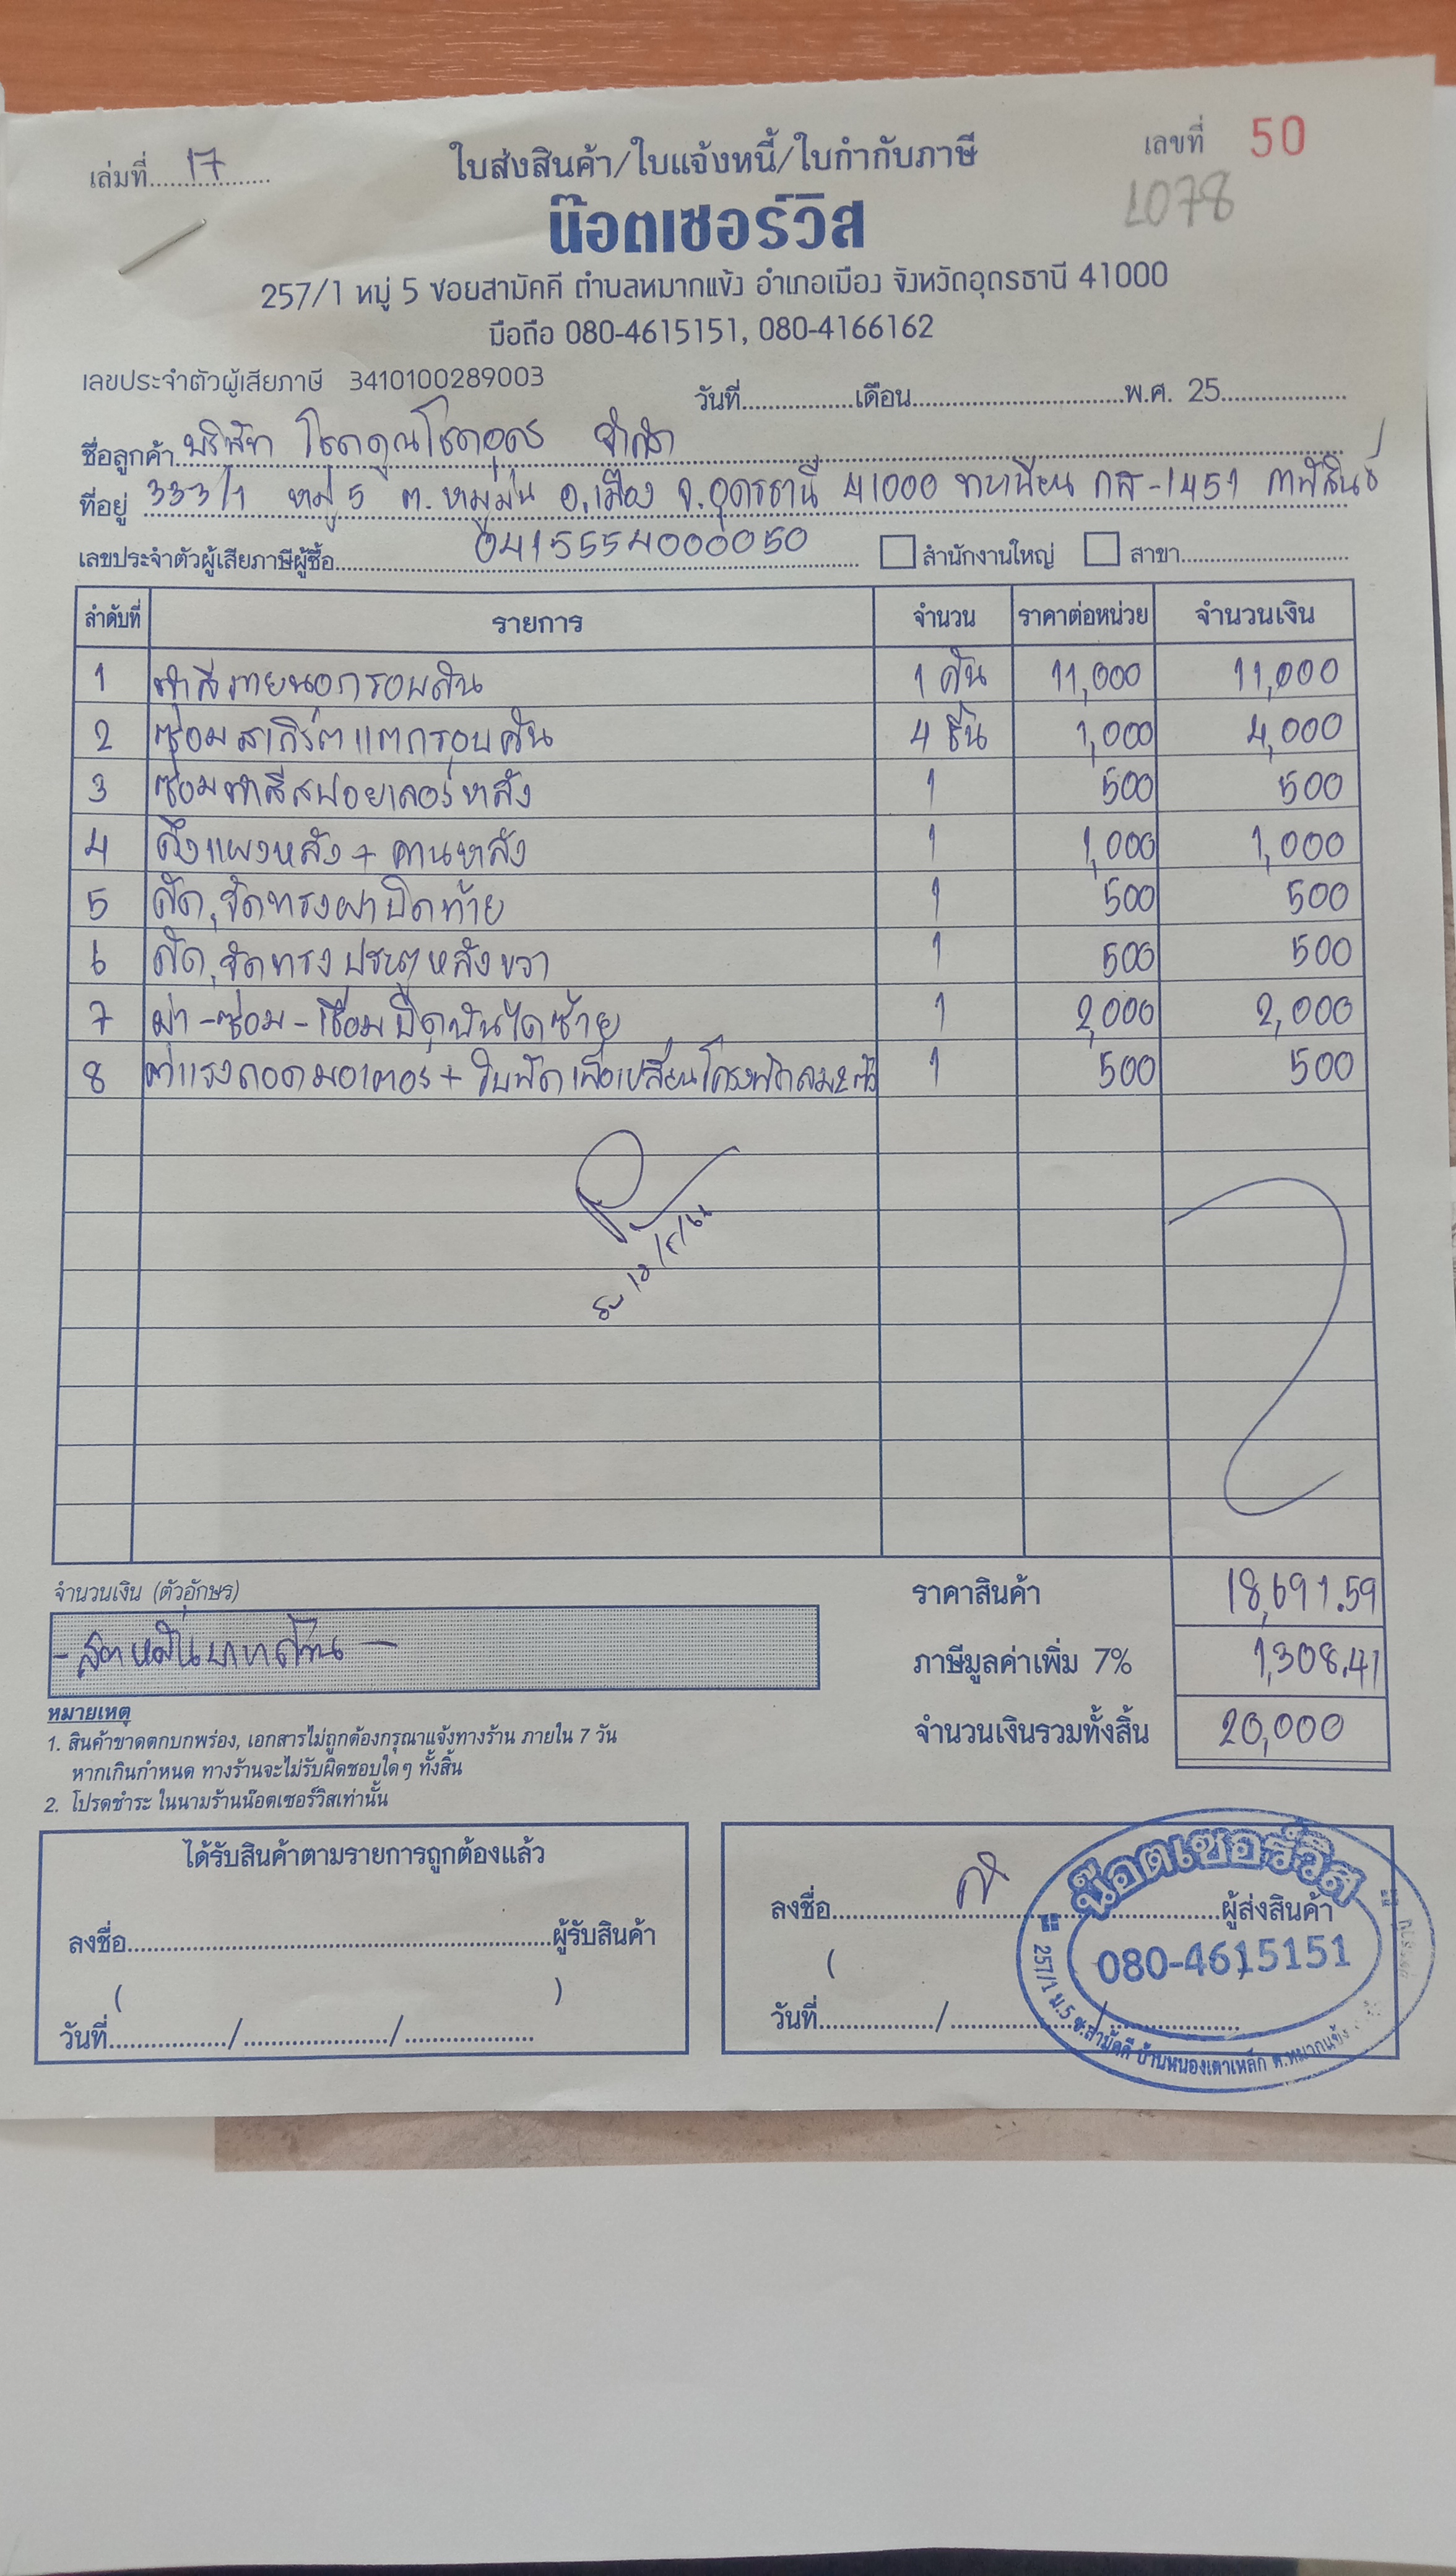 เล่มที่ 17
ใบส่งสินค้า/ใบแจ้งหนี้/ใบกำกับภาษี
เลขที่ 50
1078
น๊อตเซอร์วิส
257/1 หมู่ 5 ซอยสามัคคี ตำบลหมากแข้ง อำเภอเมือง จังหวัดอุดรธานี 41000
มือถือ 080-4615151, 080-4166162
เลขประจำตัวผู้เสียภาษี 3410100289003
วันที่ เดือน พ.ศ. 25
ชื่อลูกค้า บริษัท โชคคูณโชคอุดร จำกัด
ที่อยู่ 333/1 หมู่ 5 ต.หมูม่น อ.เมือง จ.อุดรธานี 41000 ทะเบียน กส-1451 กาฬสินธุ์
เลขประจำตัวผู้เสียภาษีผู้ซื้อ 0415554000050 สำนักงานใหญ่ สาขา
ลำดับที่ รายการ จำนวน ราคาต่อหน่วย จำนวนเงิน
1 ทำสีภายนอกรอบคัน 1 คัน 11,000 11,000
2 ซ่อมสเกิร์ตแตกรอบคัน 4 ชิ้น 1,000 4,000
3 ซ่อมทำสีสปอยเลอร์หลัง 1 500 500
4 ดึงแผงหลัง + คานหลัง 1 1,000 1,000
5 ดัด, จัดทรงฝาปิดท้าย 1 500 500
6 ดัด, จัดทรงประตูหลังขวา 1 500 500
7 ผ่า-ซ่อม-เชื่อมปิดบันไดซ้าย 1 2,000 2,000
8 ค่าแรงถอดมอเตอร์ + ใบพัดเพื่อเปลี่ยนโครงพัดลม 2 ตัว 1 500 500
จำนวนเงิน (ตัวอักษร)
- สองหมื่นบาทถ้วน -
ราคาสินค้า 18,691.59
ภาษีมูลค่าเพิ่ม 7% 1,308.41
จำนวนเงินรวมทั้งสิ้น 20,000
หมายเหตุ
1. สินค้าขาดตกบกพร่อง, เอกสารไม่ถูกต้องกรุณาแจ้งทางร้าน ภายใน 7 วัน
หากเกินกำหนด ทางร้านจะไม่รับผิดชอบใดๆ ทั้งสิ้น
2. โปรดชำระ ในนามร้านน๊อตเซอร์วิสเท่านั้น
ได้รับสินค้าตามรายการถูกต้องแล้ว
ลงชื่อ ผู้รับสินค้า
( )
วันที่ / /
ลงชื่อ ผู้ส่งสินค้า
(
วันที่ / /
น๊อตเซอร์วิส
080-4615151
257/1 ม.5 ซ.สามัคคี บ้านหนองเตาเหล็ก ต.หมากแข้ง